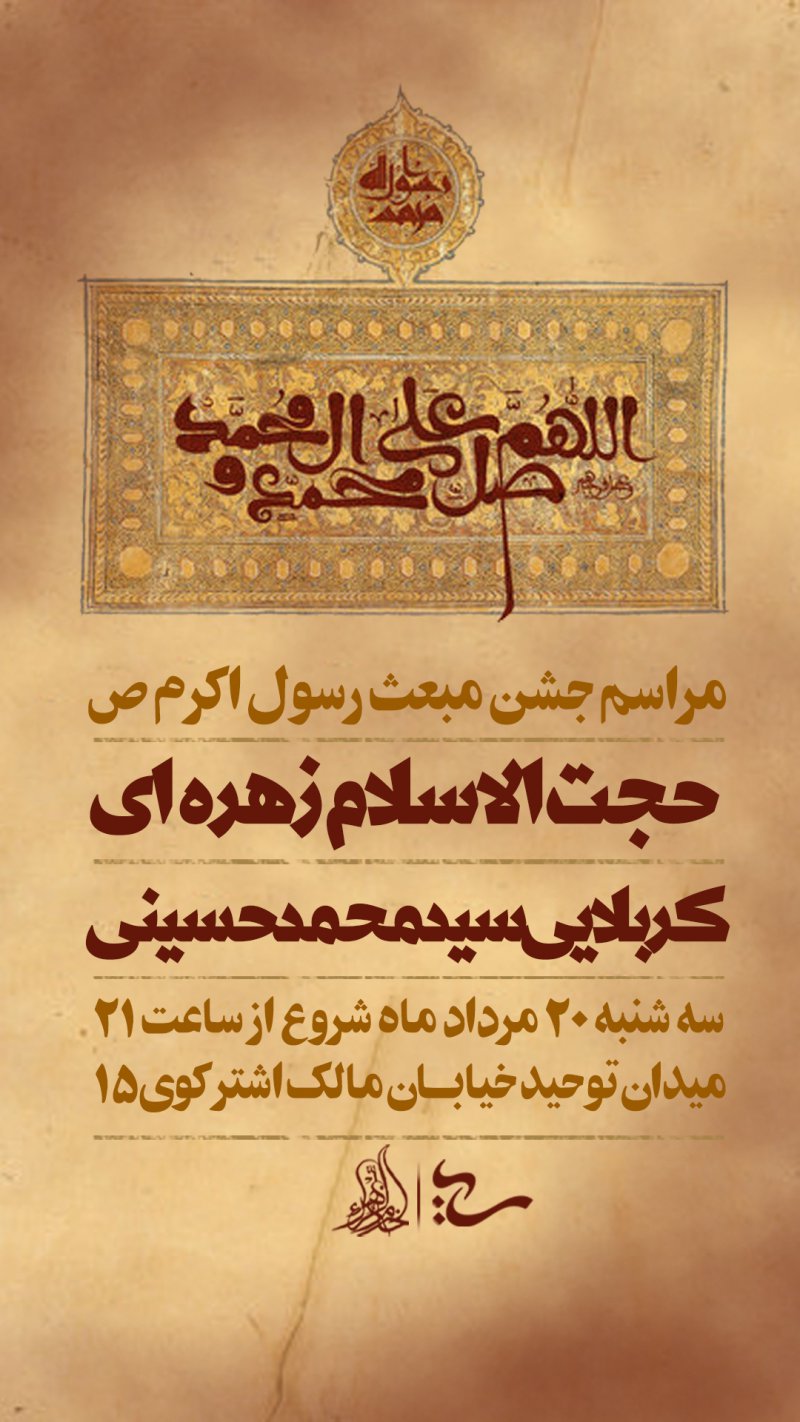 یا
رسول الله
محمد
اللّٰهُمَّ صل علی محمد و ال محمد
مراسم جشن مبعث رسول اکرم ص
حجت الاسلام زهره ای
کربلایی سیدمحمدحسینی
سه شنبه ۲۰ مرداد ماه شروع از ساعت ۲۱
میدان توحید خیابان مالک اشتر کوی ۱۵